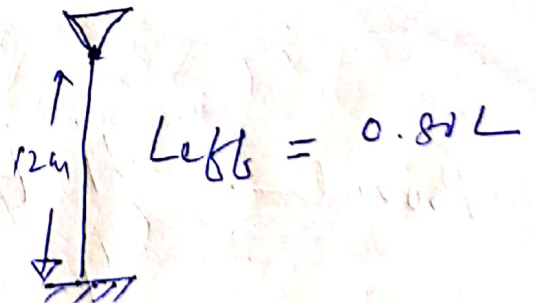 12m
Leff = 0.80L